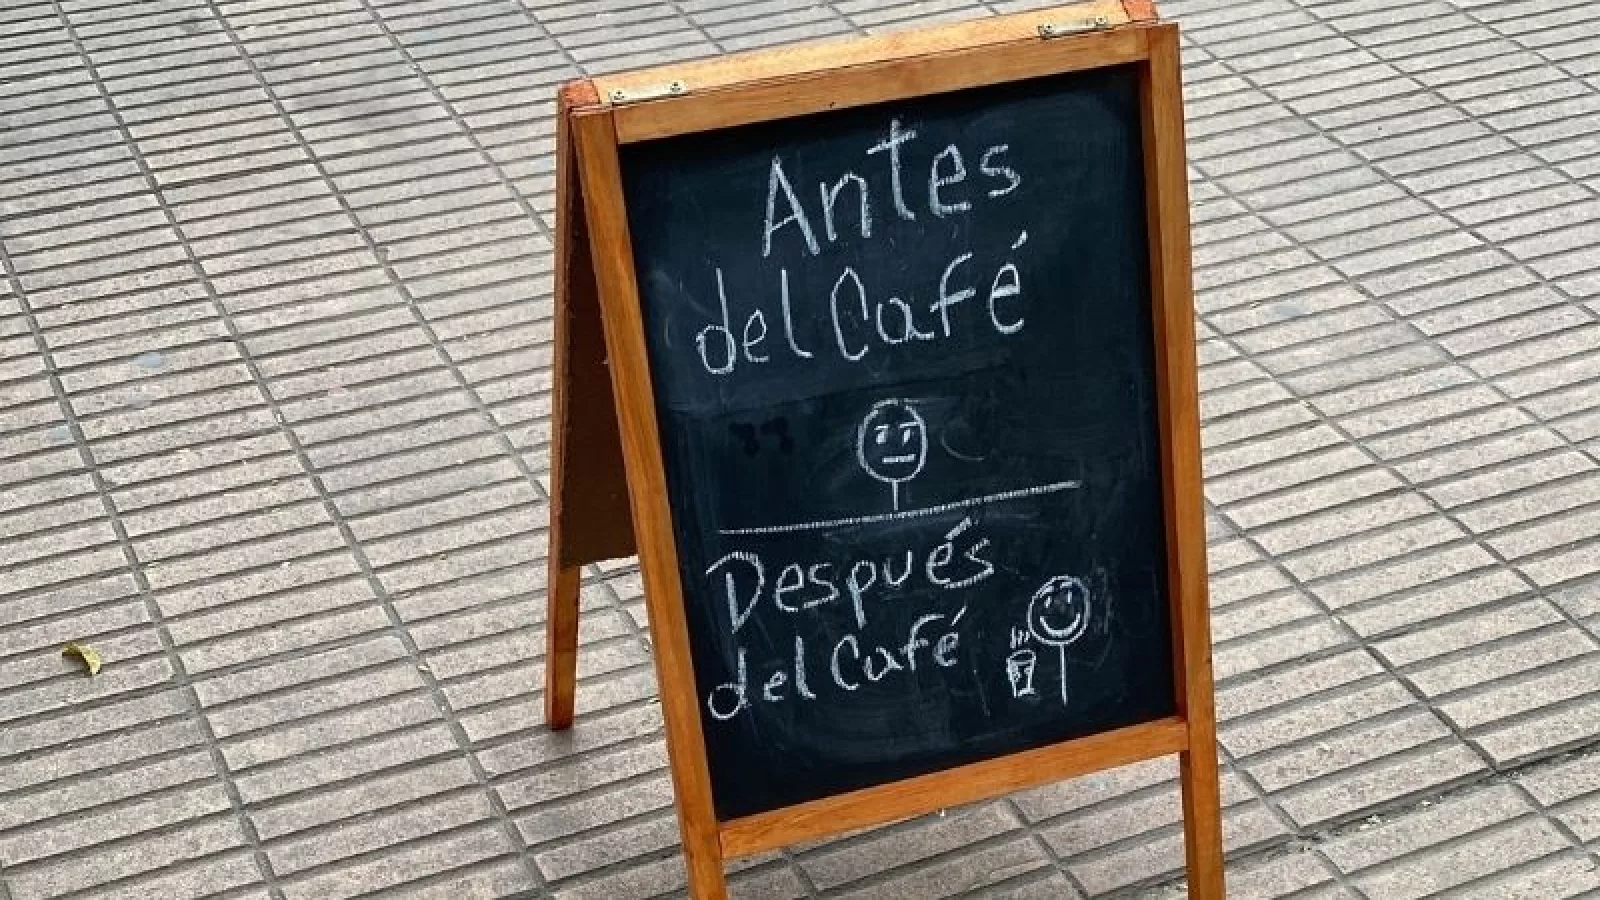 Antes
del Café
Después
del Café